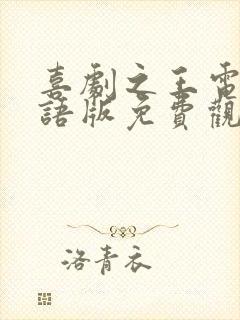 喜劇之王電
語版免費觀
洛青衣